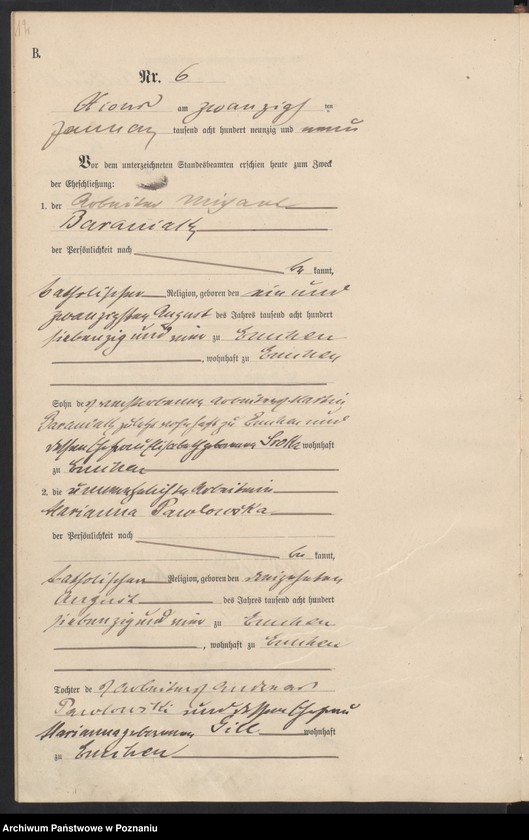 B.
Nr. 6
Xions am zwanzigsten
Januar tausend acht hundert neunzig und neun
Vor dem unterzeichneten Standesbeamten erschien heute zum Zweck
der Eheschließung:
1. der Arbeiter Michael
Baraniak
der Persönlichkeit nach
be kannt,
katholischer Religion, geboren den ein und
zwanzigsten August des Jahres tausend acht hundert
siebenzig und vier zu Emchen
, wohnhaft zu Emchen
Sohn des verstorbenen Arbeiters Martin
Baraniak zuletzt wohnhaft zu Emchen und
dessen Ehefrau Elisabeth geborenen wohnhaft
zu Emchen
2. die unverehelichte Arbeiterin
Marianna Pawlowska
der Persönlichkeit nach
be kannt,
katholischer Religion, geboren den
August des Jahres tausend acht hundert
siebenzig und vier zu Emchen
, wohnhaft zu Emchen
Tochter des Arbeiters Andreas
Pawlowski und dessen Ehefrau
Marianna geborenen Gill wohnhaft
zu Emchen
Archiwum Państwowe w Poznaniu